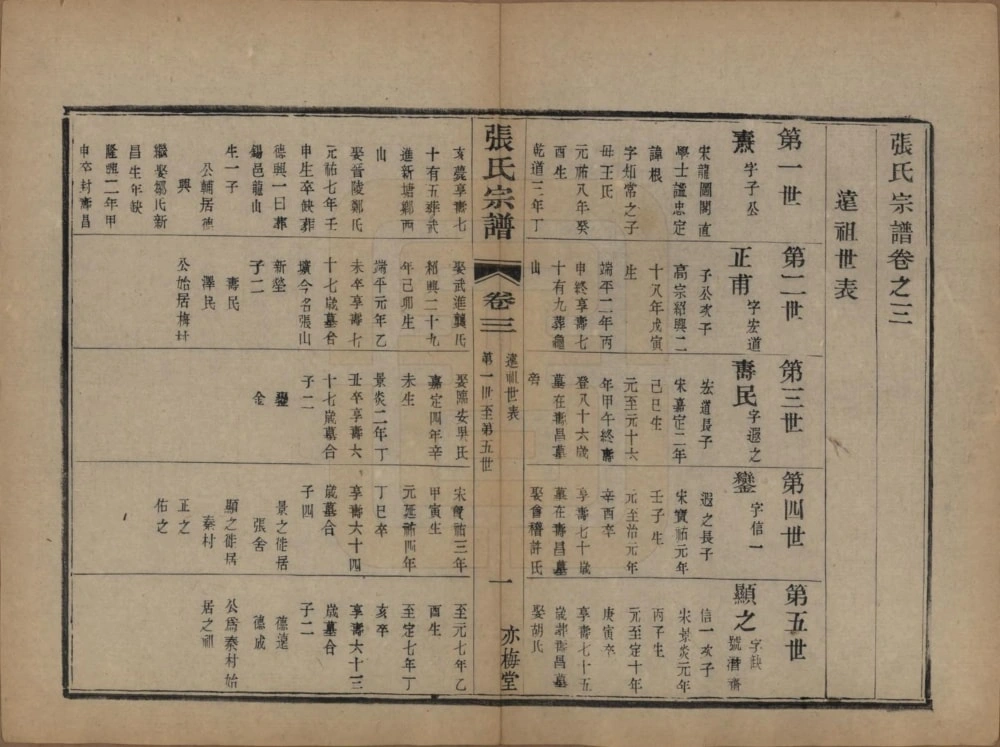 張氏宗譜卷之三
遠祖世表
第一世
燾 字子公
宋龍圖閣直
學士諡忠定
諱根
字知常之子
母王氏
元祐八年癸
酉生
乾道三年丁
亥薨享壽七
十有五葬武
進新塘鄭西
山
娶晉陵鄭氏
元祐七年壬
申生卒缺葬
德興一曰葬
錫邑龍山
生一子
公輔居德
興
繼娶鄒氏新
昌生年缺
隆興二年甲
申卒封壽昌
第二世
正甫 字宏道
子公次子
高宗紹興二
十八年戊寅
生
端平二年丙
申終享壽七
十有九葬繼
山
娶武進龔氏
紹興二十九
年己卯生
端平元年乙
未卒享壽七
十七歲墓合
壙今名張山
新塋
子二
壽民
澤民
公始居梅廿
第三世
壽民 字遐之
宏道長子
宋嘉定二年
己巳生
元至元十六
年甲午終壽
登八十六歲
墓在壽昌墓
旁
娶臨安吳氏
嘉定四年辛
未生
景炎二年丁
丑卒享壽六
十七歲墓合
子二
鑾
金
第四世
鑾 字信一
遐之長子
宋寶祐元年
壬子生
元至治元年
辛酉卒
享壽七十歲
墓在壽昌墓
娶會稽許氏
宋寶祐三年
甲寅生
元延祐四年
丁巳卒
享壽六十四
歲墓合
子四
景之徙居
張舍
顯之徙居
秦村
正之
佑之
第五世
顯之 字缺
號潛齋
信一次子
宋景炎元年
丙子生
元至定十年
庚寅卒
享壽七十五
歲葬壽昌墓
娶胡氏
至元七年乙
酉生
至定七年丁
亥卒
享壽六十三
歲墓合
子二
德遠
德成
公為秦村始
居之祖
張氏宗譜
卷三
遠祖世表
第一世至第五世
一
亦梅堂